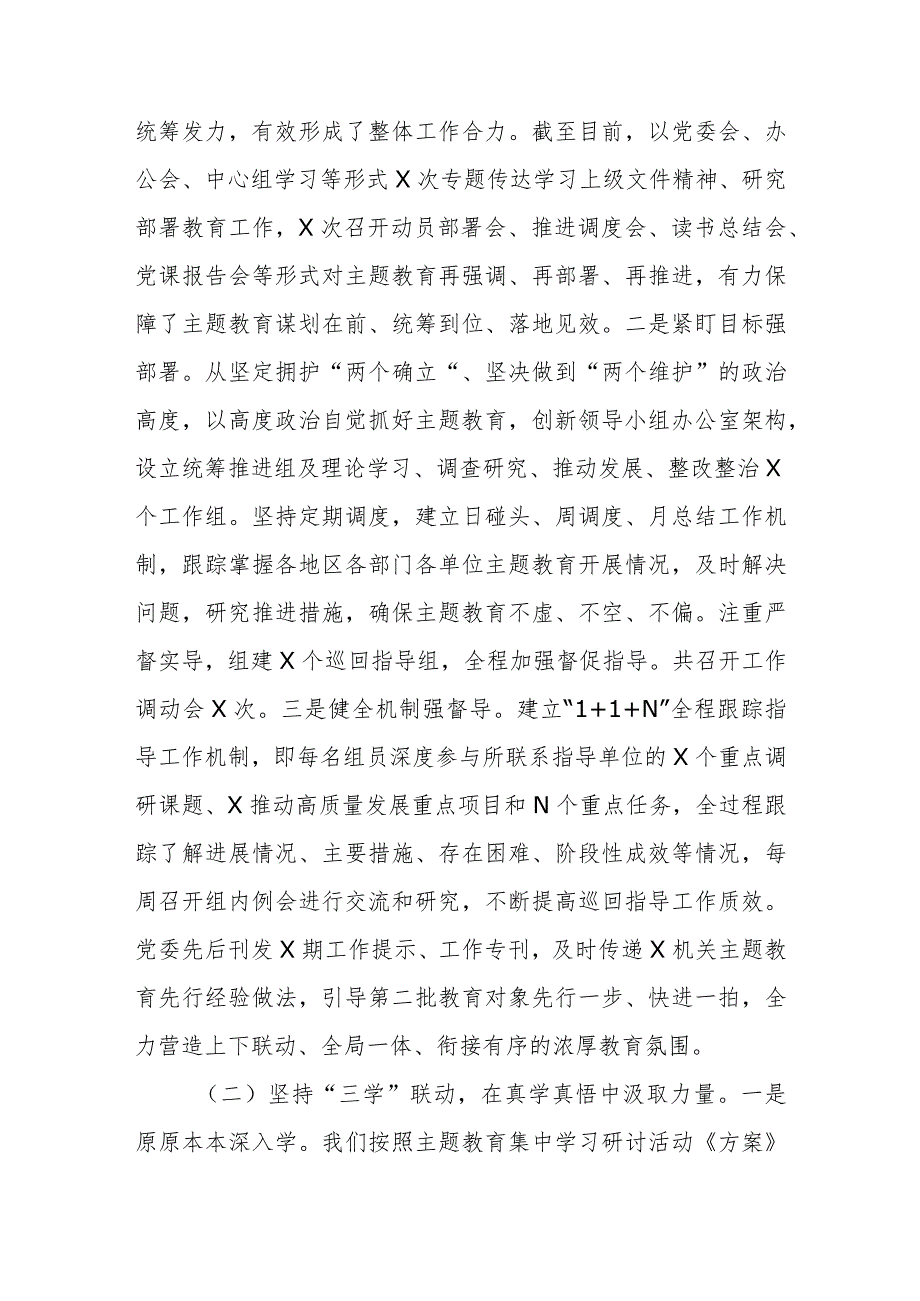 统筹发力，有效形成了整体工作合力。截至目前，以党委会、办
公会、中心组学习等形式 X 次专题传达学习上级文件精神、研究
部署教育工作，X 次召开动员部署会、推进调度会、读书总结会、
党课报告会等形式对主题教育再强调、再部署、再推进，有力保
障了主题教育谋划在前、统筹到位、落地见效。二是紧盯目标强
部署。从坚定拥护“两个确立“、坚决做到“两个维护”的政治
高度，以高度政治自觉抓好主题教育，创新领导小组办公室架构，
设立统筹推进组及理论学习、调查研究、推动发展、整改整治 X
个工作组。坚持定期调度，建立日碰头、周调度、月总结工作机
制，跟踪掌握各地区各部门各单位主题教育开展情况，及时解决
问题，研究推进措施，确保主题教育不虚、不空、不偏。注重严
督实导，组建 X 个巡回指导组，全程加强督促指导。共召开工作
调动会 X 次。三是健全机制强督导。建立“1+1+N”全程跟踪指
导工作机制，即每名组员深度参与所联系指导单位的 X 个重点调
研课题、X 推动高质量发展重点项目和 N 个重点任务，全过程跟
踪了解进展情况、主要措施、存在困难、阶段性成效等情况，每
周召开组内例会进行交流和研究，不断提高巡回指导工作质效。
党委先后刊发 X 期工作提示、工作专刊，及时传递 X 机关主题教
育先行经验做法，引导第二批教育对象先行一步、快进一拍，全
力营造上下联动、全局一体、衔接有序的浓厚教育氛围。
（二）坚持“三学”联动，在真学真悟中汲取力量。一是
原原本本深入学。我们按照主题教育集中学习研讨活动《方案》